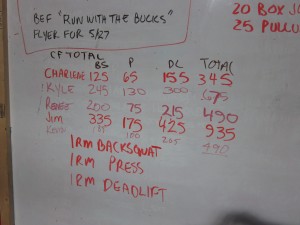 BEF "RUN WITH THE BUCKS"
FLYER FOR 5/27
20 BOX
25 PULLU
CF TOTAL
BS P DL TOTAL
CHARLENE 125 65 155 345
KYLE 245 130 300 675
RENEE 200 75 215 490
JIM 335 175 425 935
KEITH 100 205 490
1RM BACKSQUAT
1RM PRESS
1RM DEADLIFT